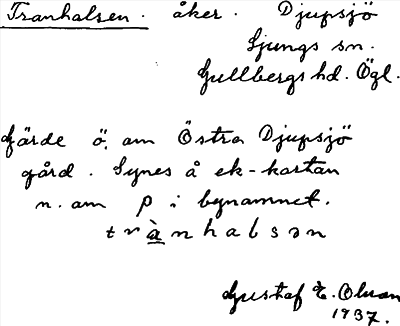 Tranhalsen. åker. Djupsjö
Ljungs sn.
Gullbergs hd. Ögl.
Gärde ö. om Östra Djupsjö
gård. Synes å ek-kartan
n. om p i bynamnet.
trànhalsən
Gustaf E. Olson
1937.